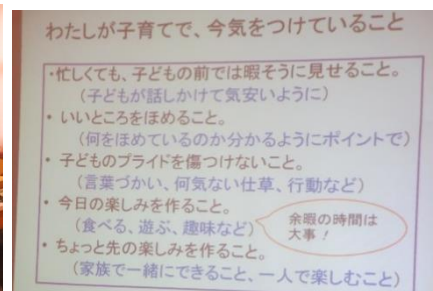 わたしが子育てで、今気をつけていること
・忙しくても、子どもの前では暇そうに見せること。
（子どもが話しかけて気安いように）
・いいところをほめること。
（何をほめているのか分かるようにポイントで）
・子どものプライドを傷つけないこと。
（言葉づかい、何気ない仕草、行動など）
・今日の楽しみを作ること。
（食べる、遊ぶ、趣味など）
余暇の時間は
大事！
・ちょっと先の楽しみを作ること。
（家族で一緒にできること、一人で楽しむこと）